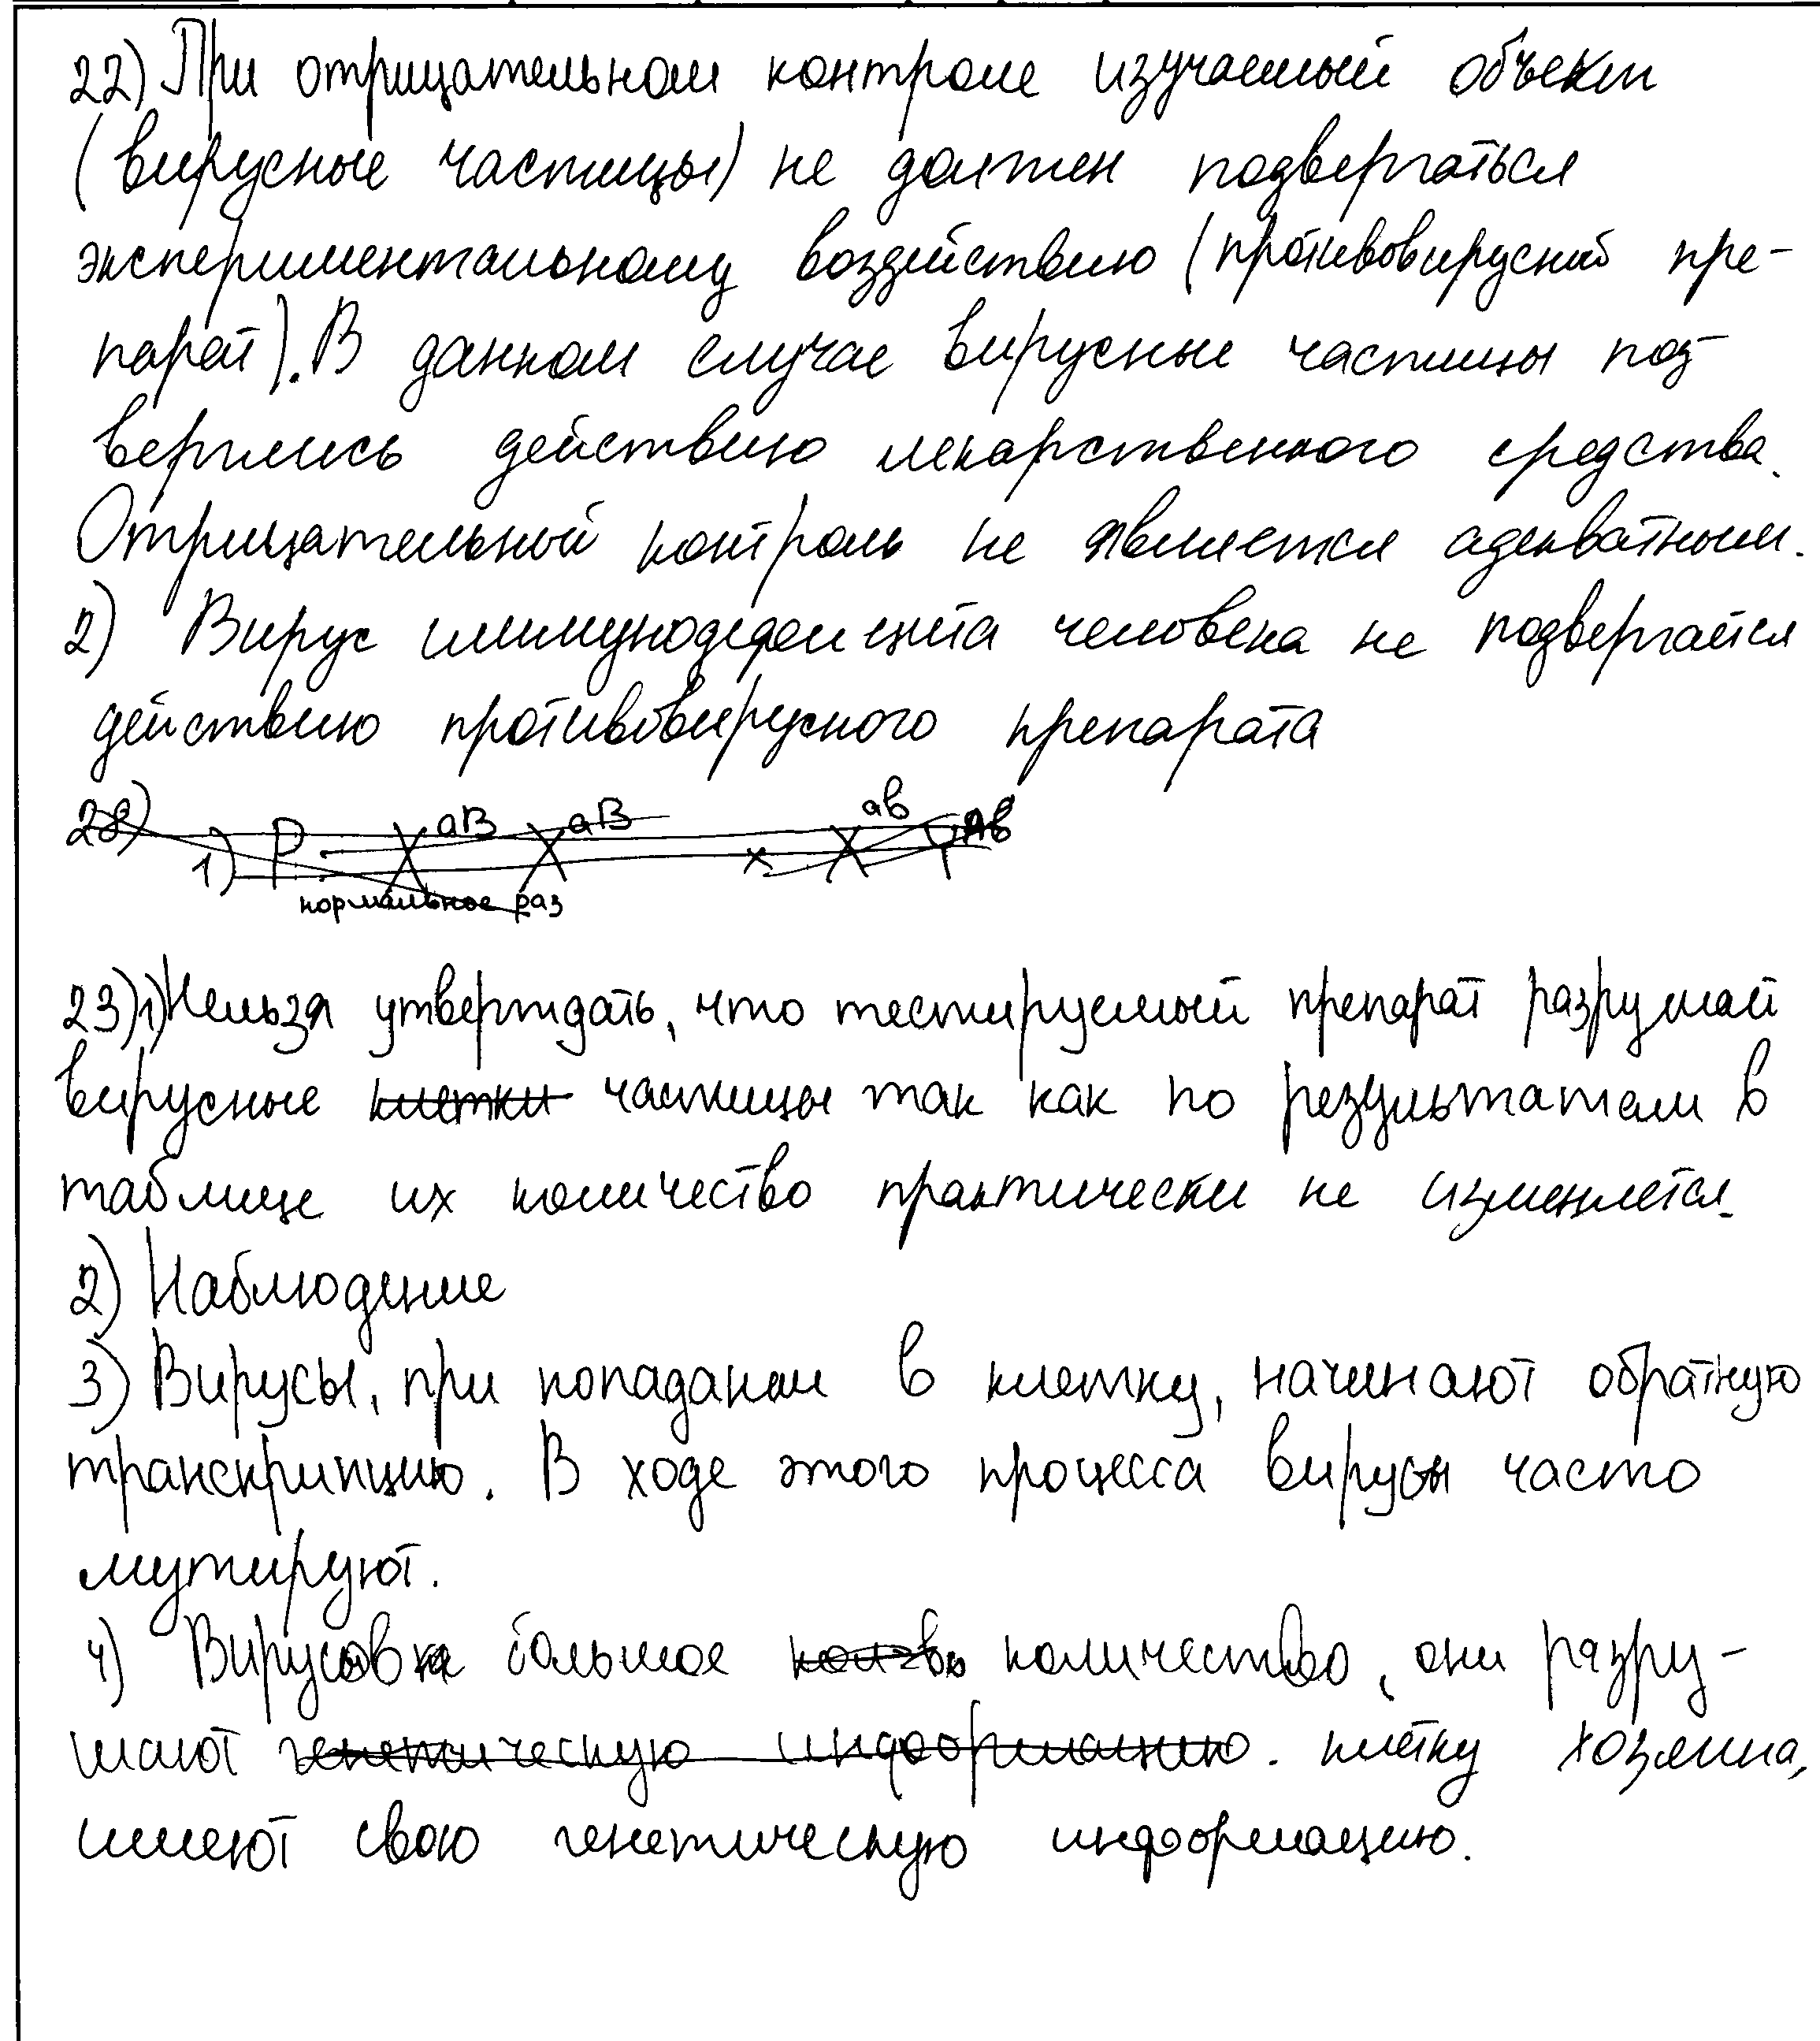 22) При отрицательном контроле изучаемый объект
(вирусные частицы) не должен подвергаться
экспериментальному воздействию (противовирусный пре-
парат). В данном случае вирусные частицы под-
верглись действию лекарственного средства.
Отрицательный контроль не является адекватным.
2) Вирус иммунодефицита человека не подвергается
действию противовирусного препарата
28)
1) P aB aB ab Ab
нормальное раз
23) 1) Нельзя утверждать, что тестируемый препарат разрушает
вирусные клетки частицы так как по результатам в
таблице их количество практически не изменяется.
2) Наблюдение
3) Вирусы, при попадании в клетку, начинают обратную
транскрипцию. В ходе этого процесса вирусы часто
мутируют.
4) Вирусов большое кол-во количество, они разру-
шают генетическую информацию. клетку хозяина,
имеют свою генетическую информацию.